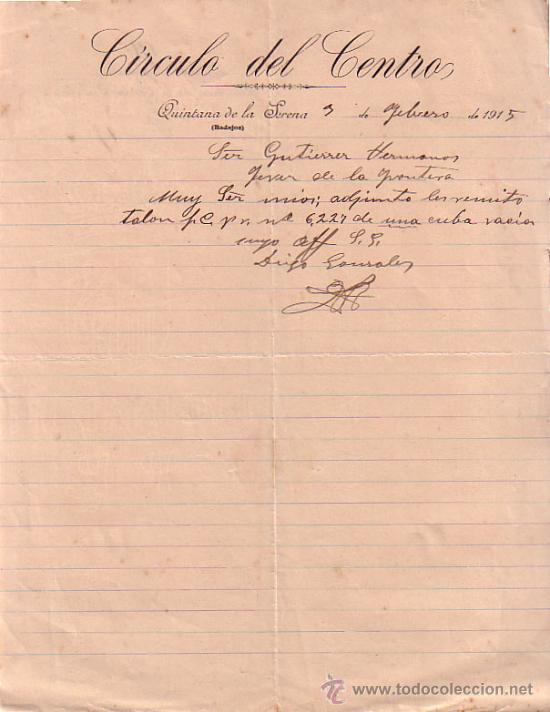 Círculo del Centro
Quintana de la Serena 3 de Febrero de 1915
(Badajoz)
Ser Gutierrer Hermanos
Jerar de la Frontera
Muy Ser mios; adjunto les remito
talon p.C. pr. nº 6,227 de una cuba vacia
suyo aff S.S.
Diego Gonzales
todocoleccion
www.todocoleccion.net